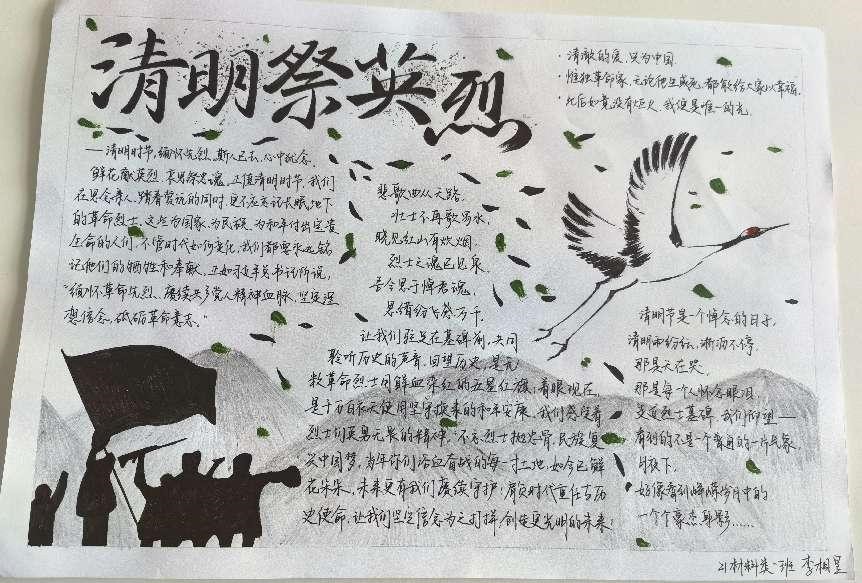 清明祭英烈
·清澈的爱，只为中国.
·惟独革命家，无论他生或死，都能给大家以幸福.
·此后如竟没有炬火，我便是唯一的光.
——清明时节，缅怀先烈，斯人已去，心中犹念.
鲜花献英烈，长思祭忠魂，正值清明时节，我们
在思念亲人，踏春赏玩的同时，更不应忘记长眠地下
的革命烈士，这些为国家、为民族、为和平付出宝贵
生命的人们，不管时代如何变化，我们都要永远铭
记他们的牺牲和奉献，正如习主席书记所说，
“缅怀革命先烈、赓续共产党人精神血脉，坚定理
想信念，砥砺革命意志。”
悲歌一曲从天路，
壮士不再歌易水，
晓见红山有炊烟，
烈士之魂已归来，
吾今思于悼君魂，
思绪纷飞葬万千，
让我们驻足在墓碑前，共同
聆听历史的声音，回望历史，是无
数革命烈士用鲜血染红的五星红旗；着眼现在，
是千百白衣天使用坚守换来的和平安康，我们感受着
烈士们英勇无畏的精神，“不忘烈士抛忠骨，民族复
兴中国梦，当年你们浴血奋战的每一寸土地，如今已鲜
花朵朵，未来更有我们赓续守护；肩负时代重任与历
史使命，让我们坚定信念为之打拼，创造更光明的未来！
清明节是一个悼念的日子，
清明雨纷纷，淅沥不停，
那是天在哭，
那是每个人怀念眼泪，
走近烈士墓碑，我们仰望——
看到的不是一个普通的一所气象，
月夜下，
好像看到峥嵘岁月中的
一个个豪杰身影……
21材料类一班 李相呈